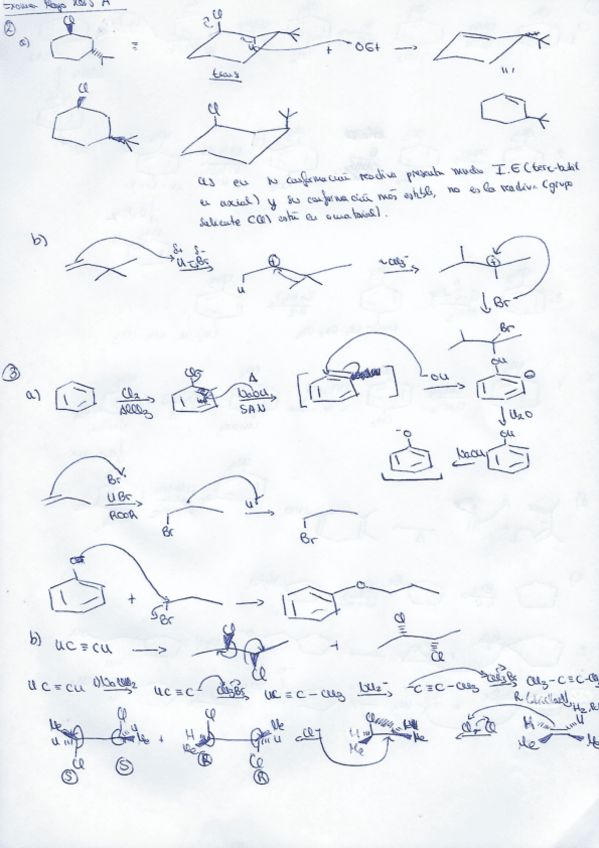 Examen Mayo 2013 A
2
a) Cl ≡ Cl + OEt →
trans
Cl Cl
cis en su conformación reactiva presenta mucho I.E (terc-butil
en axial) y su conformación más estable, no es la reactiva (grupo
saliente Cl(e) está en ecuatorial).
b) δ+ δ-
H-Br → H ⊕ ~CH3⁻ → ⊕
Br⁻
Br
3
a) Cl2 AlCl3 → Cl Δ NaOH SAN → [ ] -OH → OH ⊖
↓ H2O
⁻O NaOH OH
Br·
HBr
ROOR → Br H· → Br
O
+ Br → O
b) HC≡CH → Cl Cl + Cl Cl
HC≡CH 1) NaNH2 → HC≡C⁻ CH3Br → HC≡C-CH3 NH2⁻ → ⁻C≡C-CH3 CH3Br → CH3-C≡C-CH3
H2
Me H Cl Cl H Me + H Me Cl Cl Me H Cl⁻ H Me Cl H Me Cl-Cl H Me H Me
S S R R